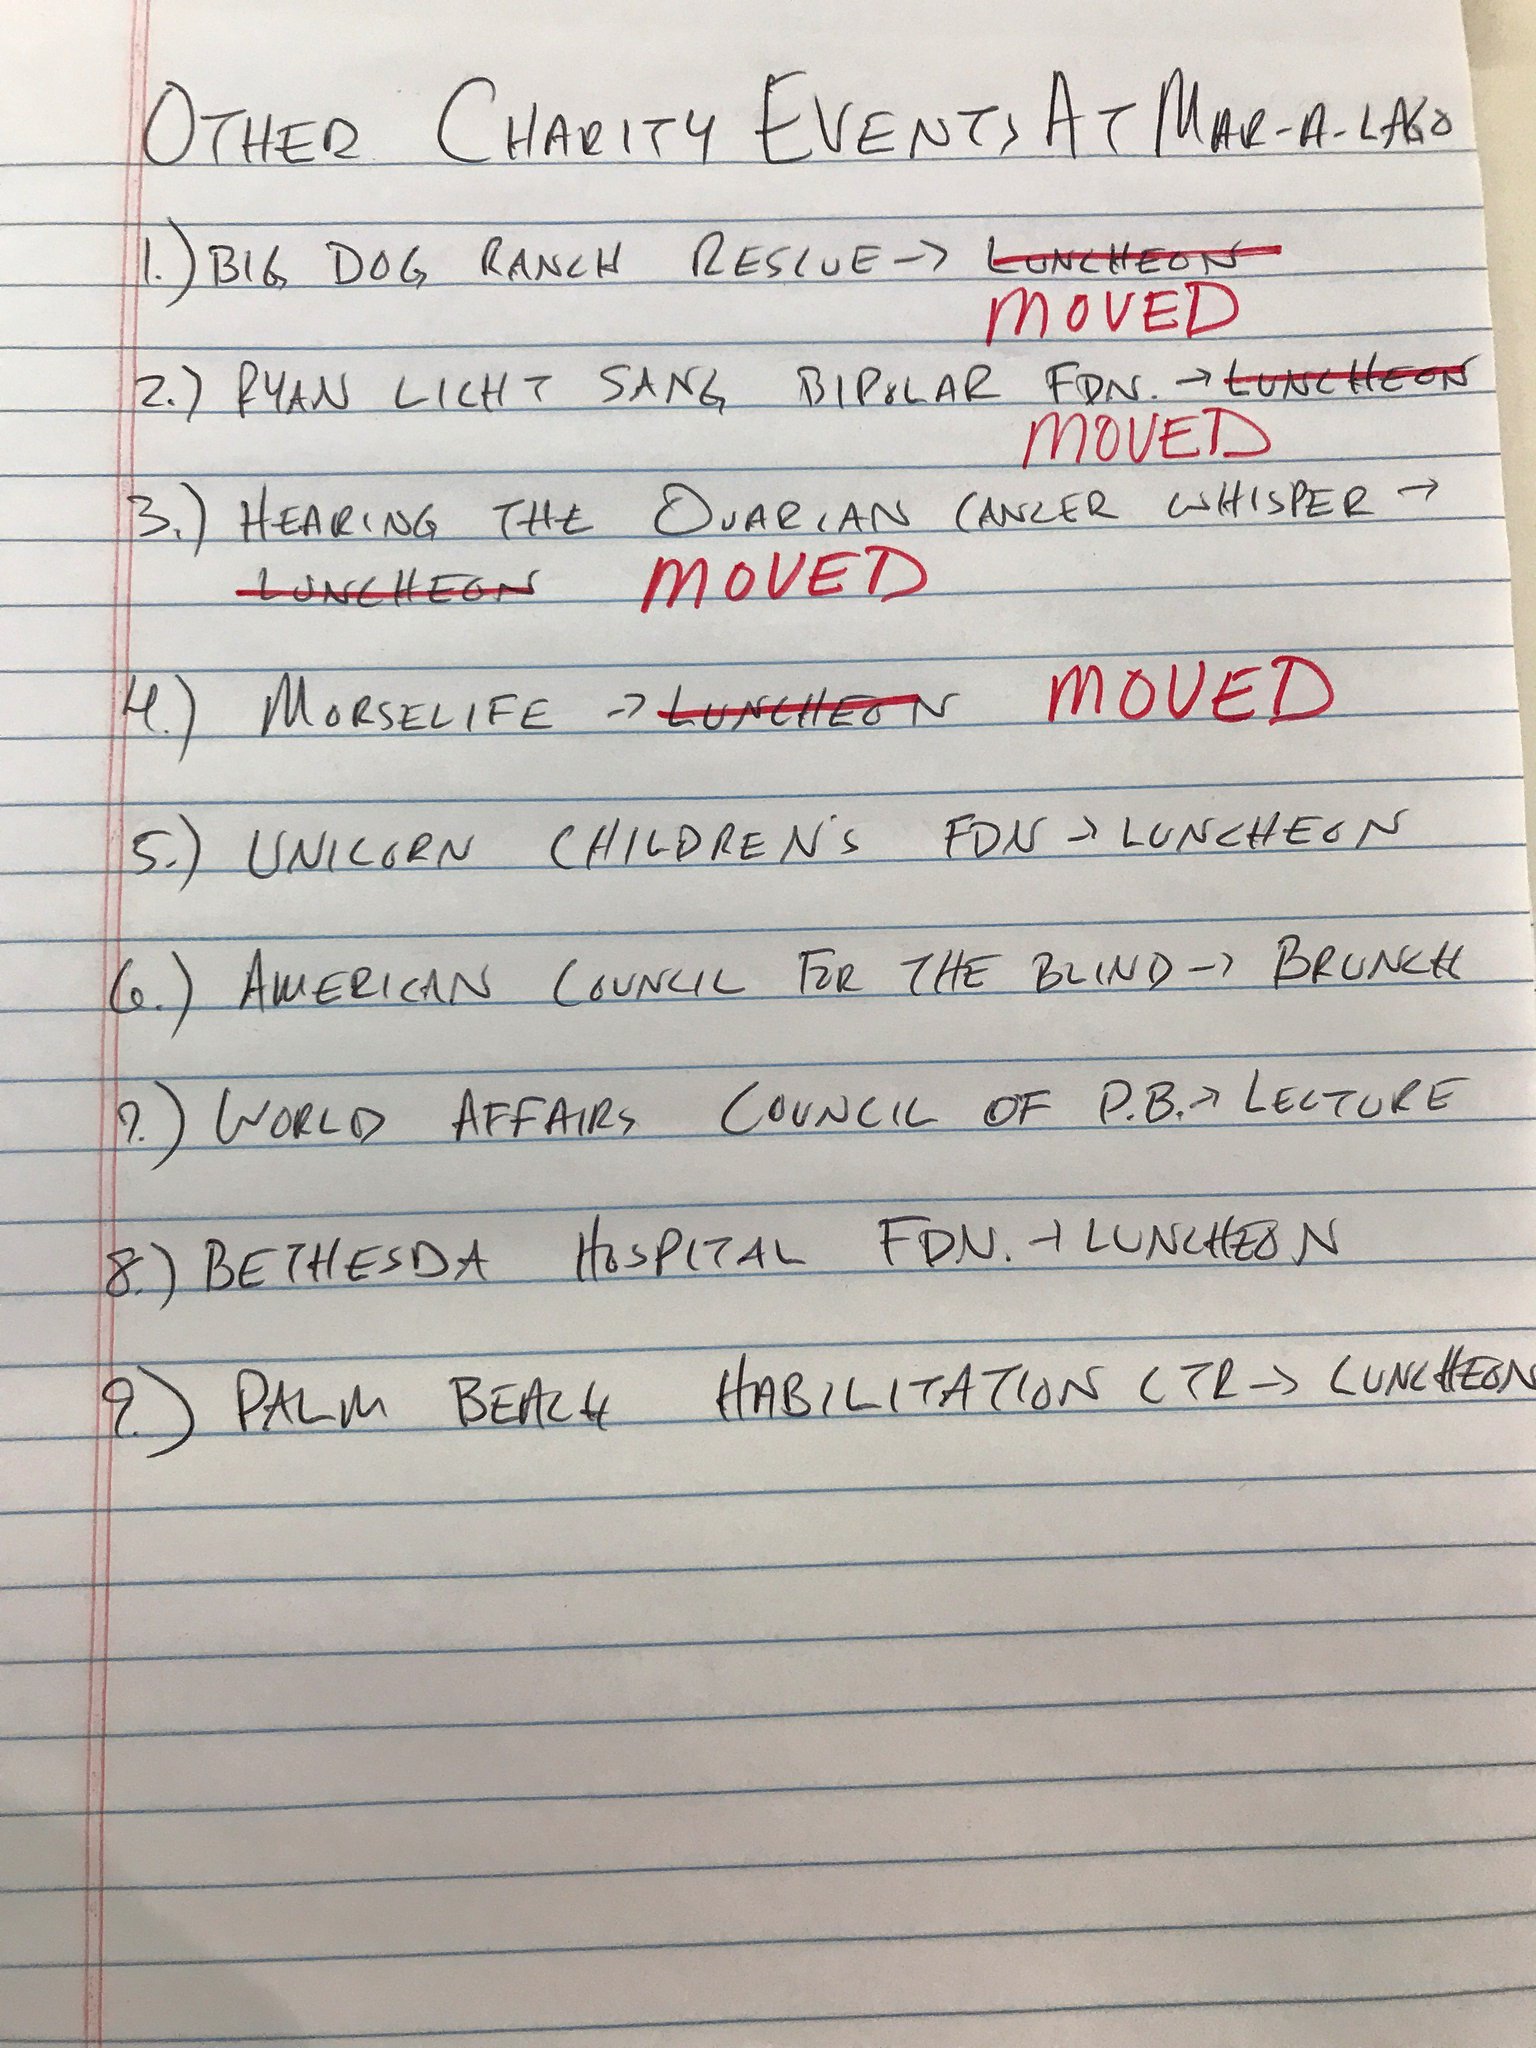 OTHER CHARITY EVENTS AT MAR-A-LAGO
1.) BIG DOG RANCH RESCUE → LUNCHEON
MOVED
2.) RYAN LICHT SANG BIPOLAR FDN. → LUNCHEON
MOVED
3.) HEARING THE OVARIAN CANCER WHISPER →
LUNCHEON MOVED
4.) MORSELIFE → LUNCHEON MOVED
5.) UNICORN CHILDREN'S FDN → LUNCHEON
6.) AMERICAN COUNCIL FOR THE BLIND → BRUNCH
7.) WORLD AFFAIRS COUNCIL OF P.B. → LECTURE
8.) BETHESDA HOSPITAL FDN. → LUNCHEON
9.) PALM BEACH HABILITATION CTR → LUNCHEON